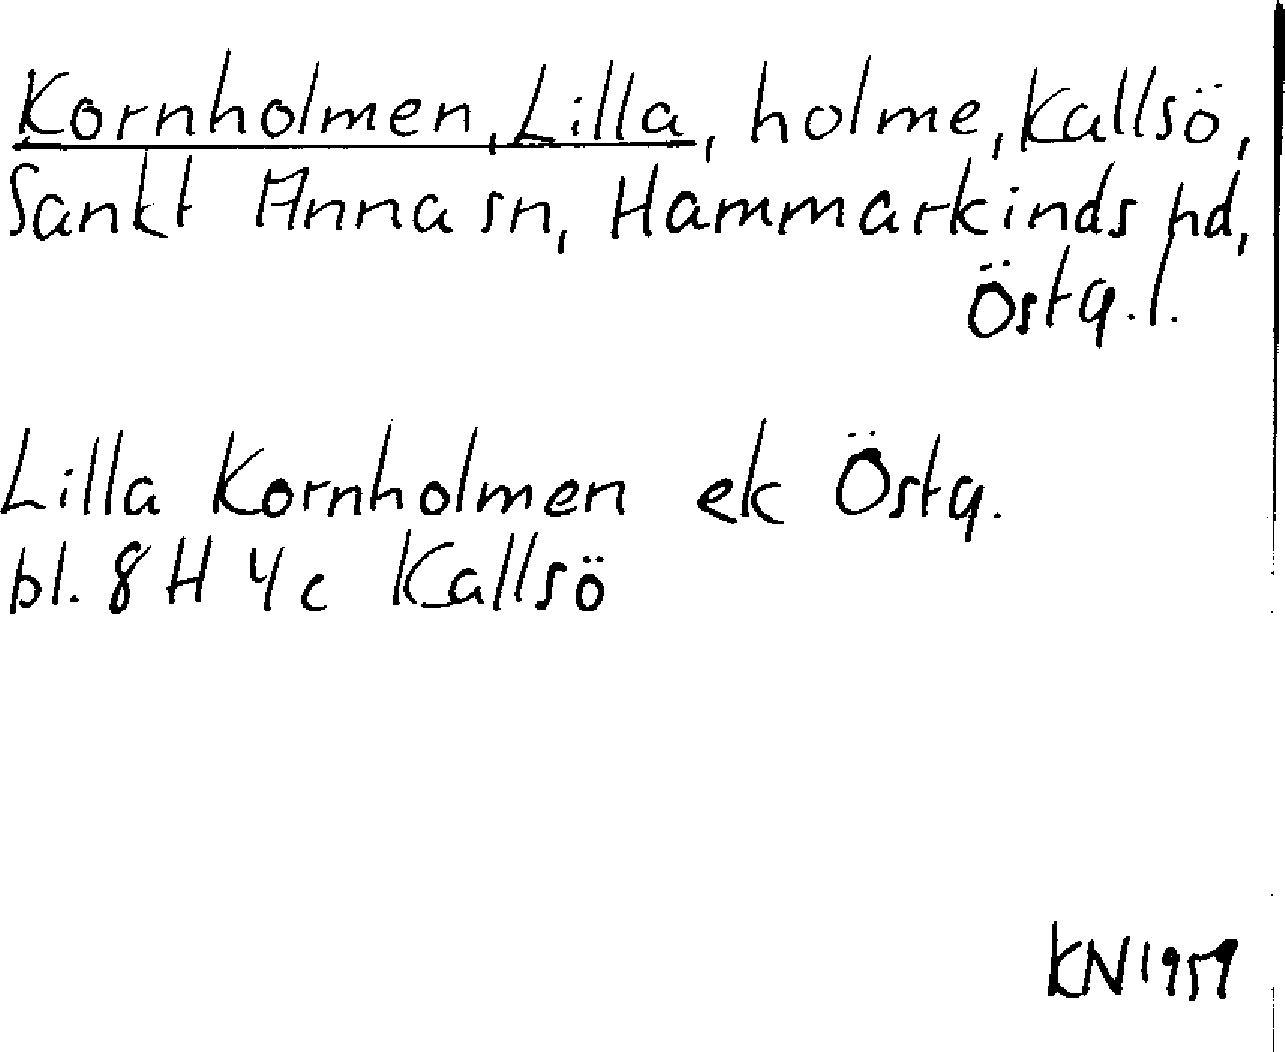 Kornholmen, Lilla, holme, Kallsö,
Sankt Anna sn, Hammarkinds hd,
Östg. l.
Lilla Kornholmen ek Östg.
bl. 8 H 4 c Kallsö
KN 1959